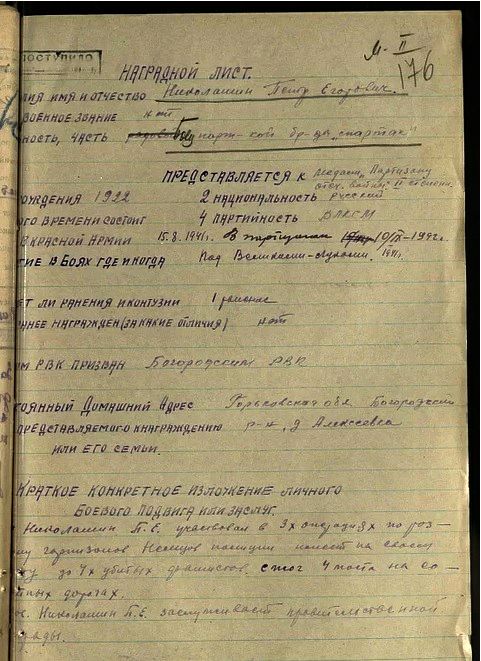 ПОСТУПИЛО
М-II
176
НАГРАДНОЙ ЛИСТ.
ЛИЯ ИМЯ И ОТЧЕСТВО Николашин Петр Егорович.
ВОЕННОЕ ЗВАНИЕ нет
НОСТЬ, ЧАСТЬ парт-кой бр-ды "спартак"
ПРЕДСТАВЛЯЕТСЯ К медали "Партизану
отеч. войны" II степени.
РОЖДЕНИЯ 1922 2 НАЦИОНАЛЬНОСТЬ русский
ОГО ВРЕМЕНИ СОСТОИТ 4 ПАРТИЙНОСТЬ ВЛКСМ
В КРАСНОЙ АРМИИ 15.8.1941г. В партизанах 10/IX-1942г.
ТИЕ В БОЯХ ГДЕ И КОГДА Под Великими-Луками. 1941г.
ЕТ ЛИ РАНЕНИЯ И КОНТУЗИИ 1 ранение
НЕЕ НАГРАЖДЕН (ЗА КАКИЕ ОТЛИЧИЯ) нет
ИМ РВК ПРИЗВАН Богородским РВК
ТОЯННЫЙ ДОМАШНИЙ АДРЕС Горьковская обл. Богородский
ПРЕДСТАВЛЯЕМОГО К НАГРАЖДЕНИЮ р-н, д Алексеевка
ИЛИ ЕГО СЕМЬИ.
КРАТКОЕ КОНКРЕТНОЕ ИЗЛОЖЕНИЕ ЛИЧНОГО
БОЕВОГО ПОДВИГА ИЛИ ЗАСЛУГ.
Николашин П.Е. участвовал в 3х операциях по роз-
му гарнизонов Немцов полиции имеет на своем
ту до 4х убитых фашистов. сжог 4 моста на со-
йных дорогах.
ов. Николашин П.Е. заслуживает правительственной
рады.